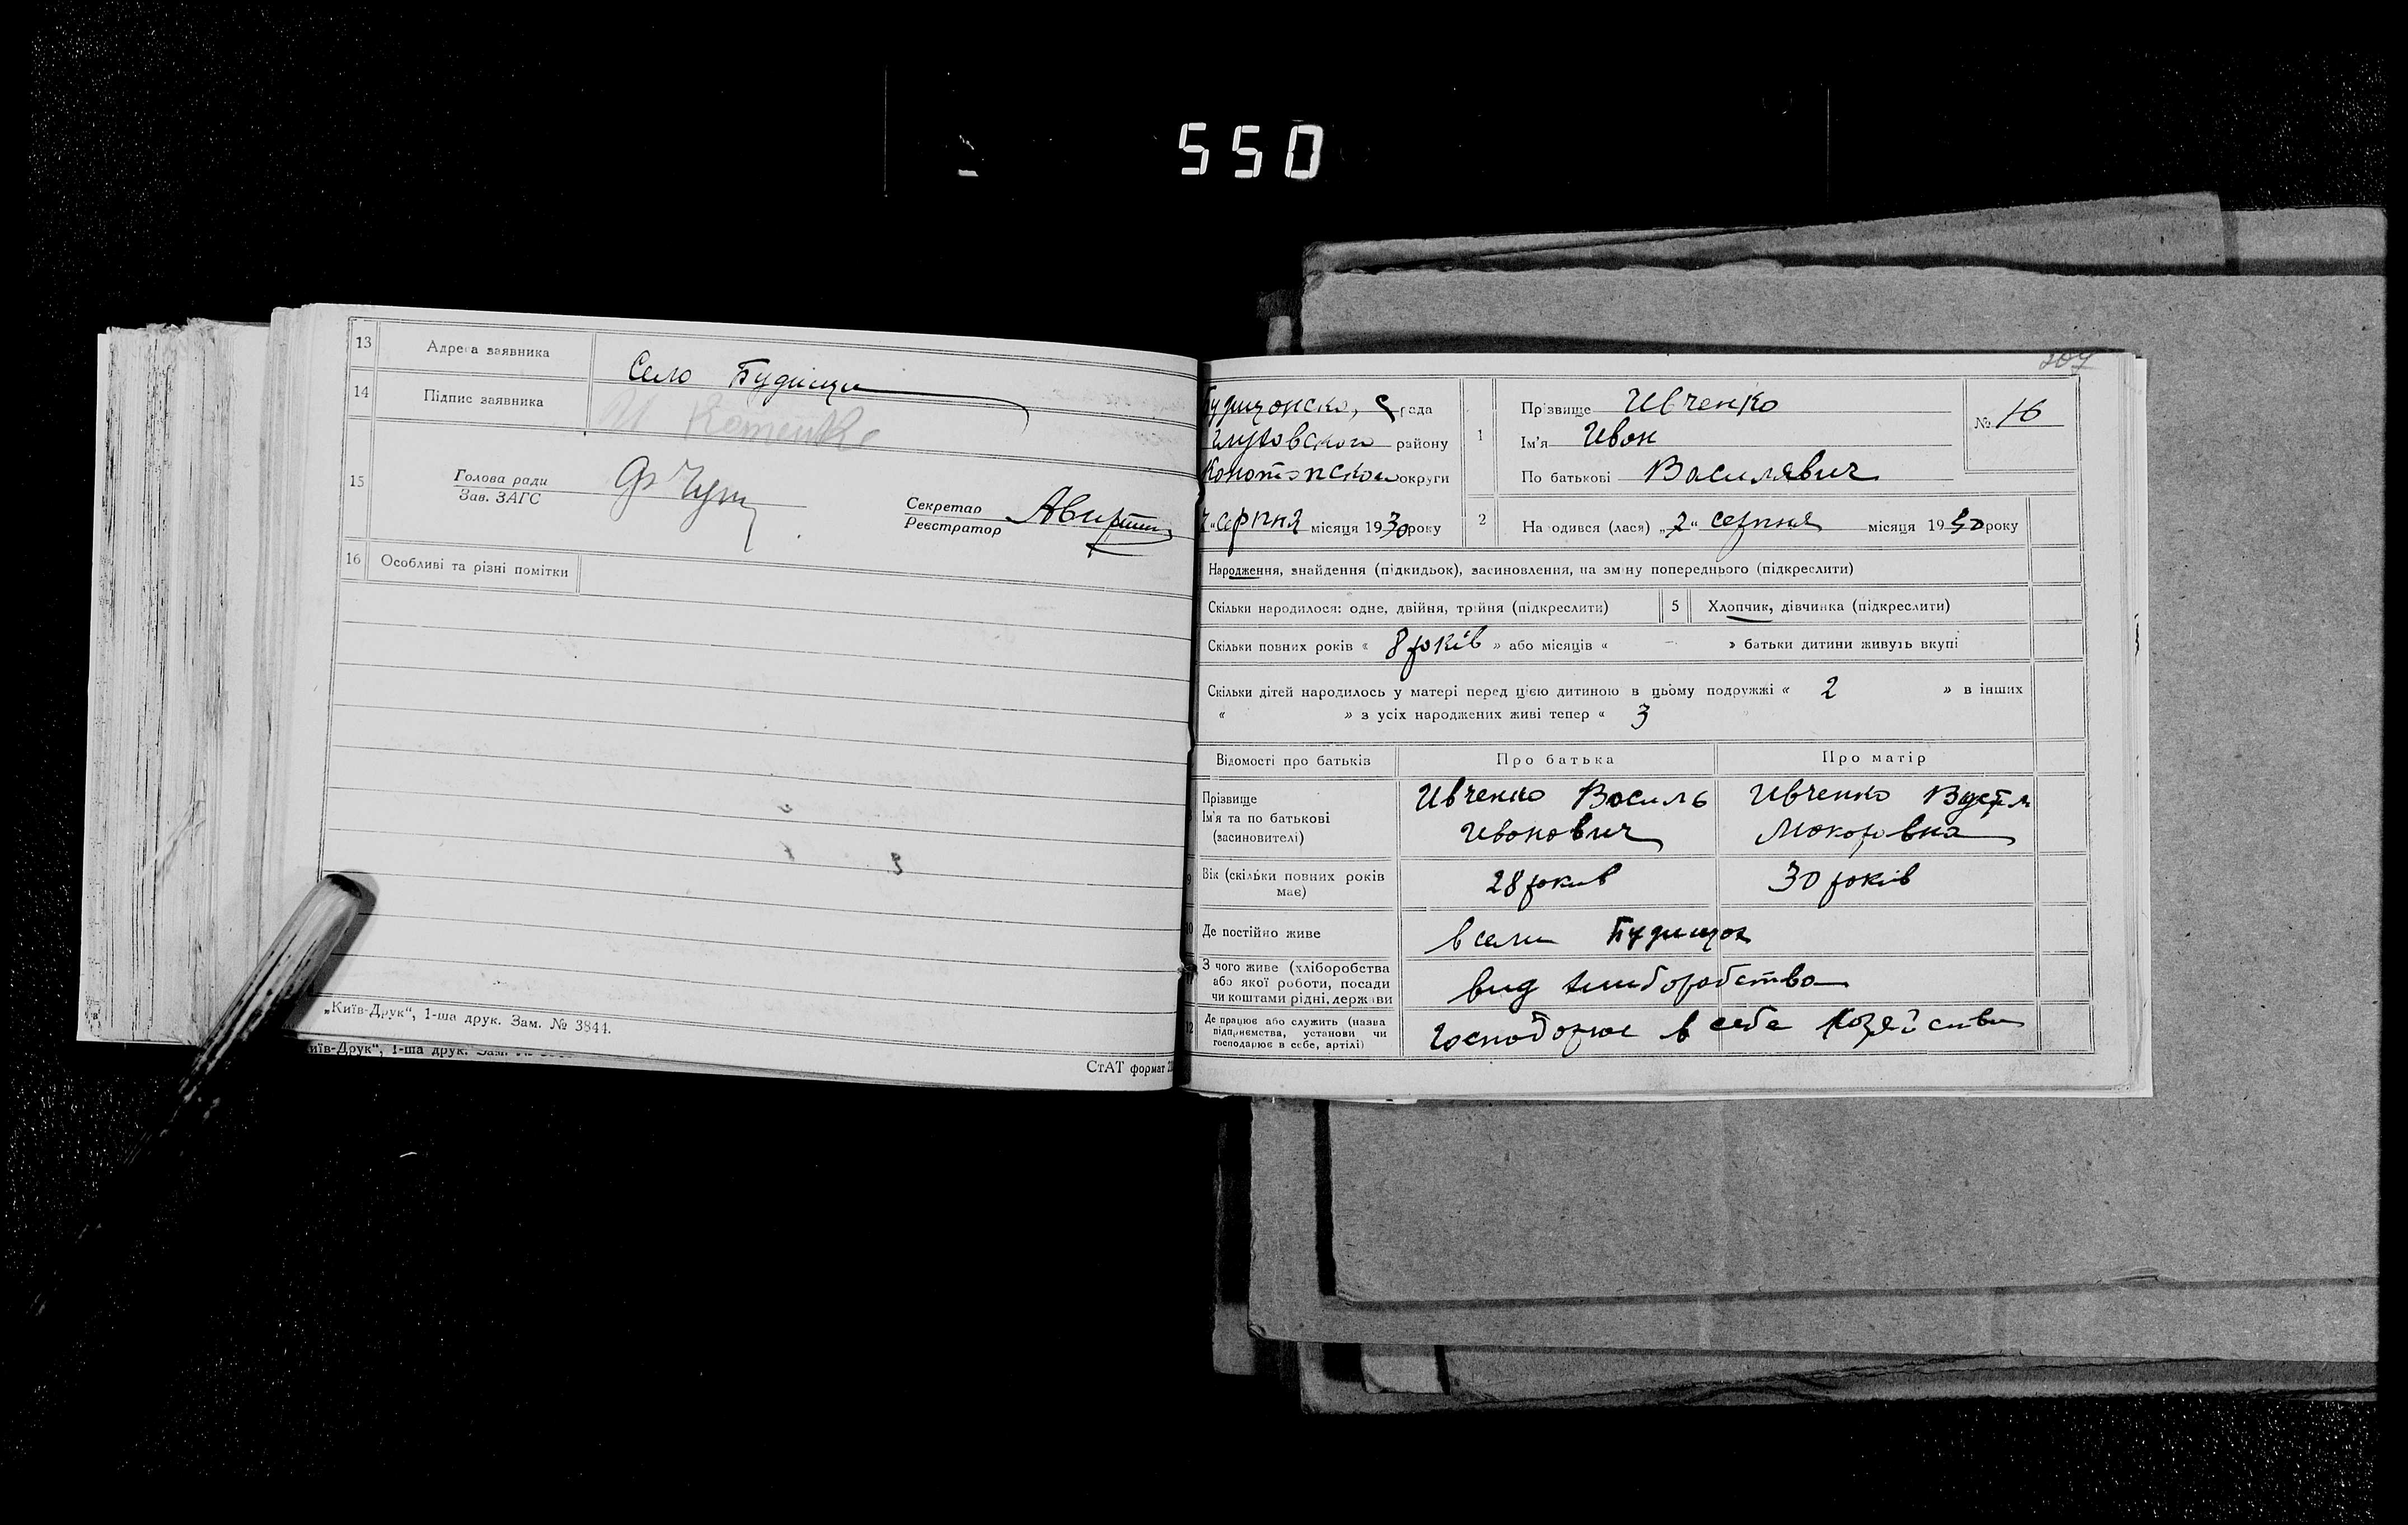 550
13 Адреса заявника Село Будищи
14 Підпис заявника
15 Голова ради
Зав. ЗАГС
Секретар
Реєстратор
16 Особливі та різні помітки
„Київ-Друк“, 1-ша друк. Зам. № 3844.
иїв-Друк“, 1-ша друк.
СтАТ формат
207
рада
Глуховского району
округи
серпня місяця 1930 року
1 Прізвище Ивченко
Ім'я Иван
По батькові Василявич
№ 16
2 Народився (лася) „2“ серпня місяця 1930 року
Народження, знайдення (підкидьок), засиновлення, на зміну попереднього (підкреслити)
Скільки народилося: одне, двійня, трійня (підкреслити) 5 Хлопчик, дівчинка (підкреслити)
Скільки повних років « 8 років » або місяців « » батьки дитини живуть вкупі
Скільки дітей народилось у матері перед цією дитиною в цьому подружжі « 2 » в інших
« » з усіх народжених живі тепер « 3
Відомості про батьків Про батька Про матір
Прізвище
Ім'я та по батькові
(засиновителі)
Ивченко Василь
Иванович
Ивченко
Макаровна
Вік (скільки повних років
має)
28 рокив
30 років
Де постійно живе в сели Будищах
З чого живе (хліборобства
або якої роботи, посади
чи коштами рідні, держави
вид хлиборабства
12 Де працює або служить (назва
підприємства, установи чи
господарює в себе, артілі)
Господарює в себе